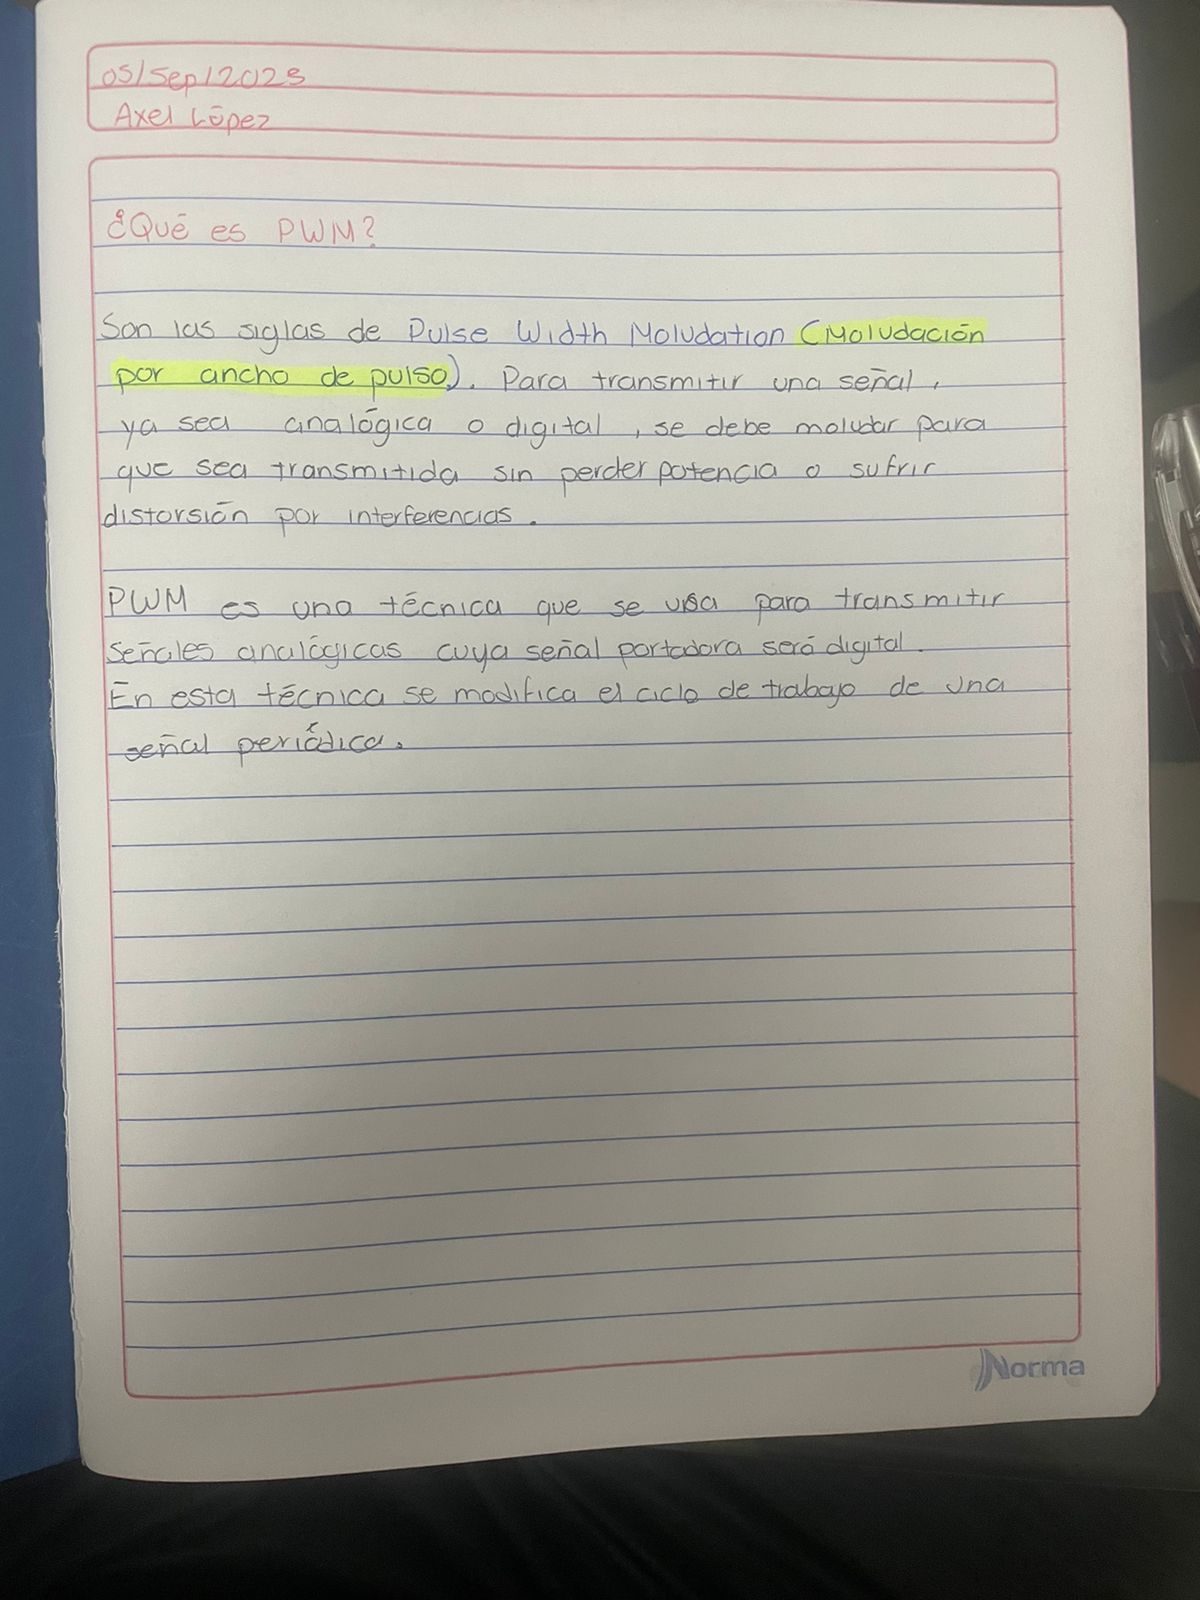 05/Sep/2023
Axel López
¿Qué es PWM?
Son las siglas de Pulse Width Moludation (Moludación
por ancho de pulso). Para transmitir una señal,
ya sea analógica o digital, se debe moludar para
que sea transmitida sin perder potencia o sufrir
distorsión por interferencias.
PWM es una técnica que se usa para transmitir
señales analógicas cuya señal portadora será digital.
En esta técnica se modifica el ciclo de trabajo de una
señal periódica.
Norma